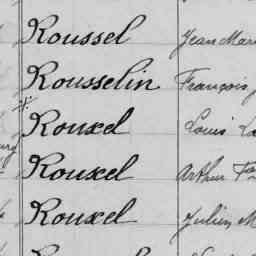 Roussel Jean Mar
Rousselin François
Rouxel Louis
Rouxel Arthur
Rouxel Julien M